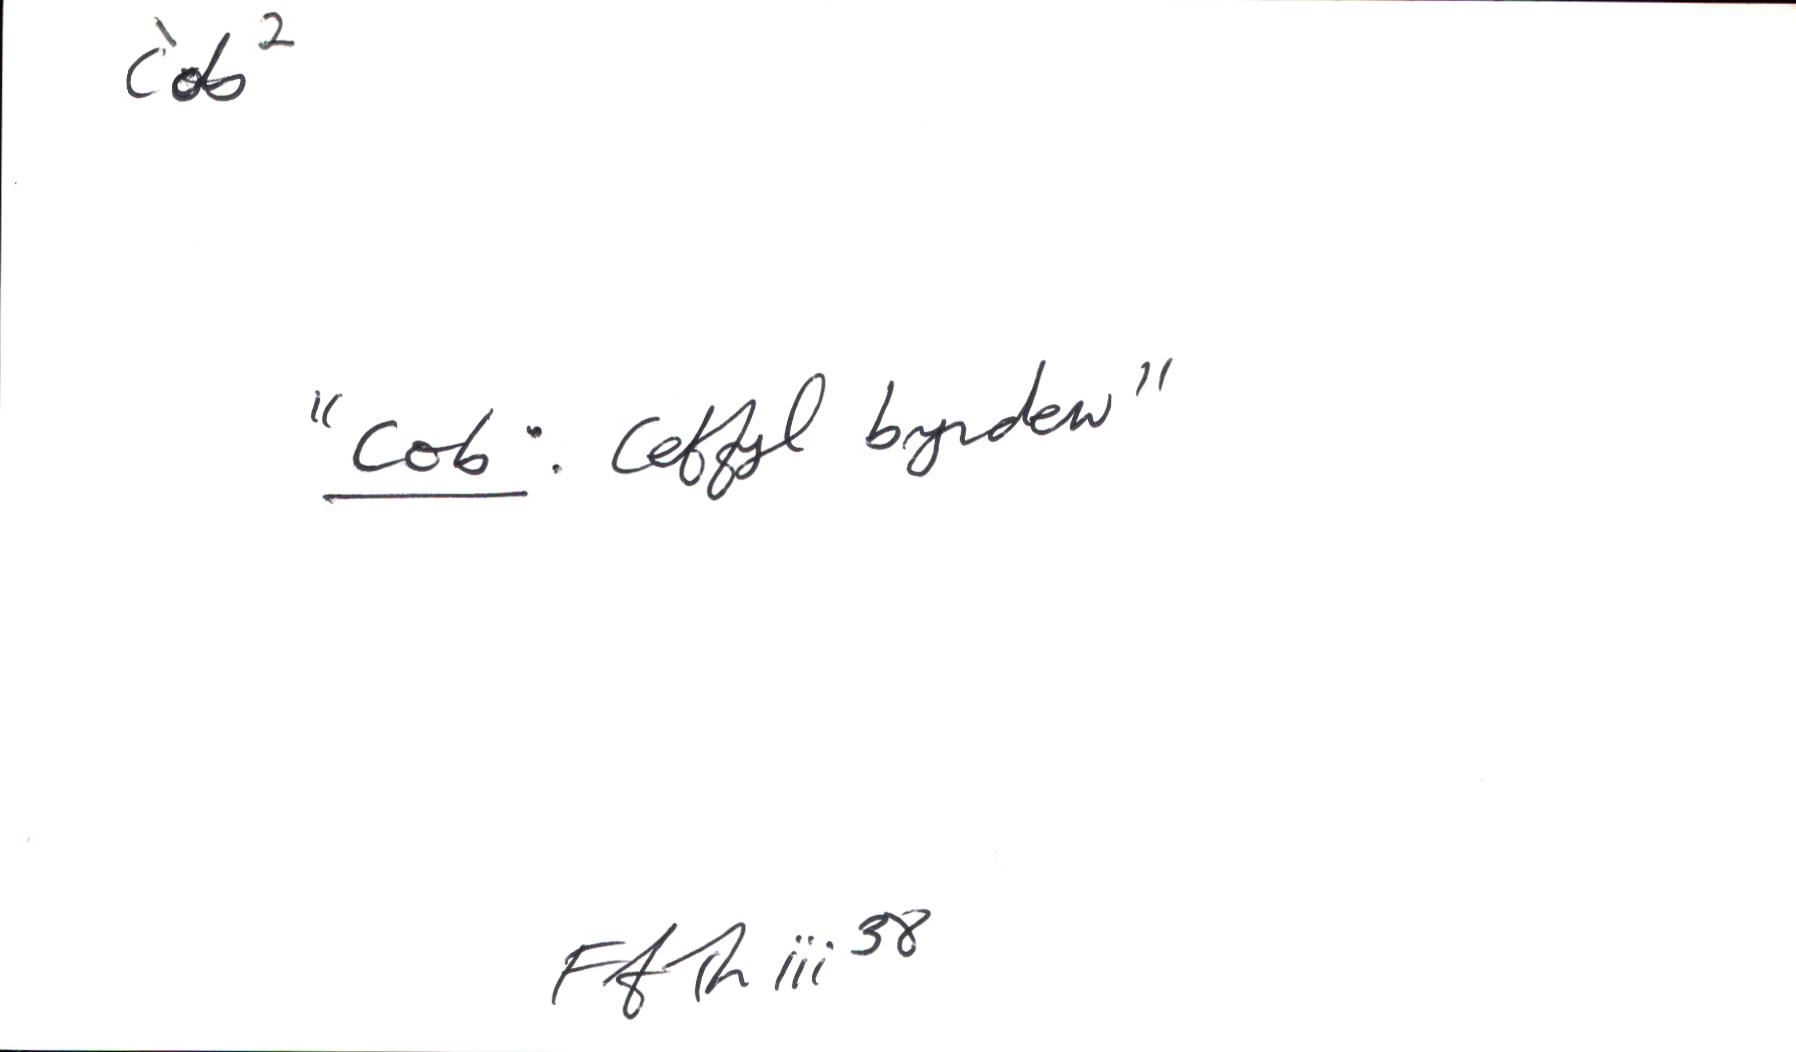 còb²
"Cob": Ceffyl byrdew"
Ff Th iii 38